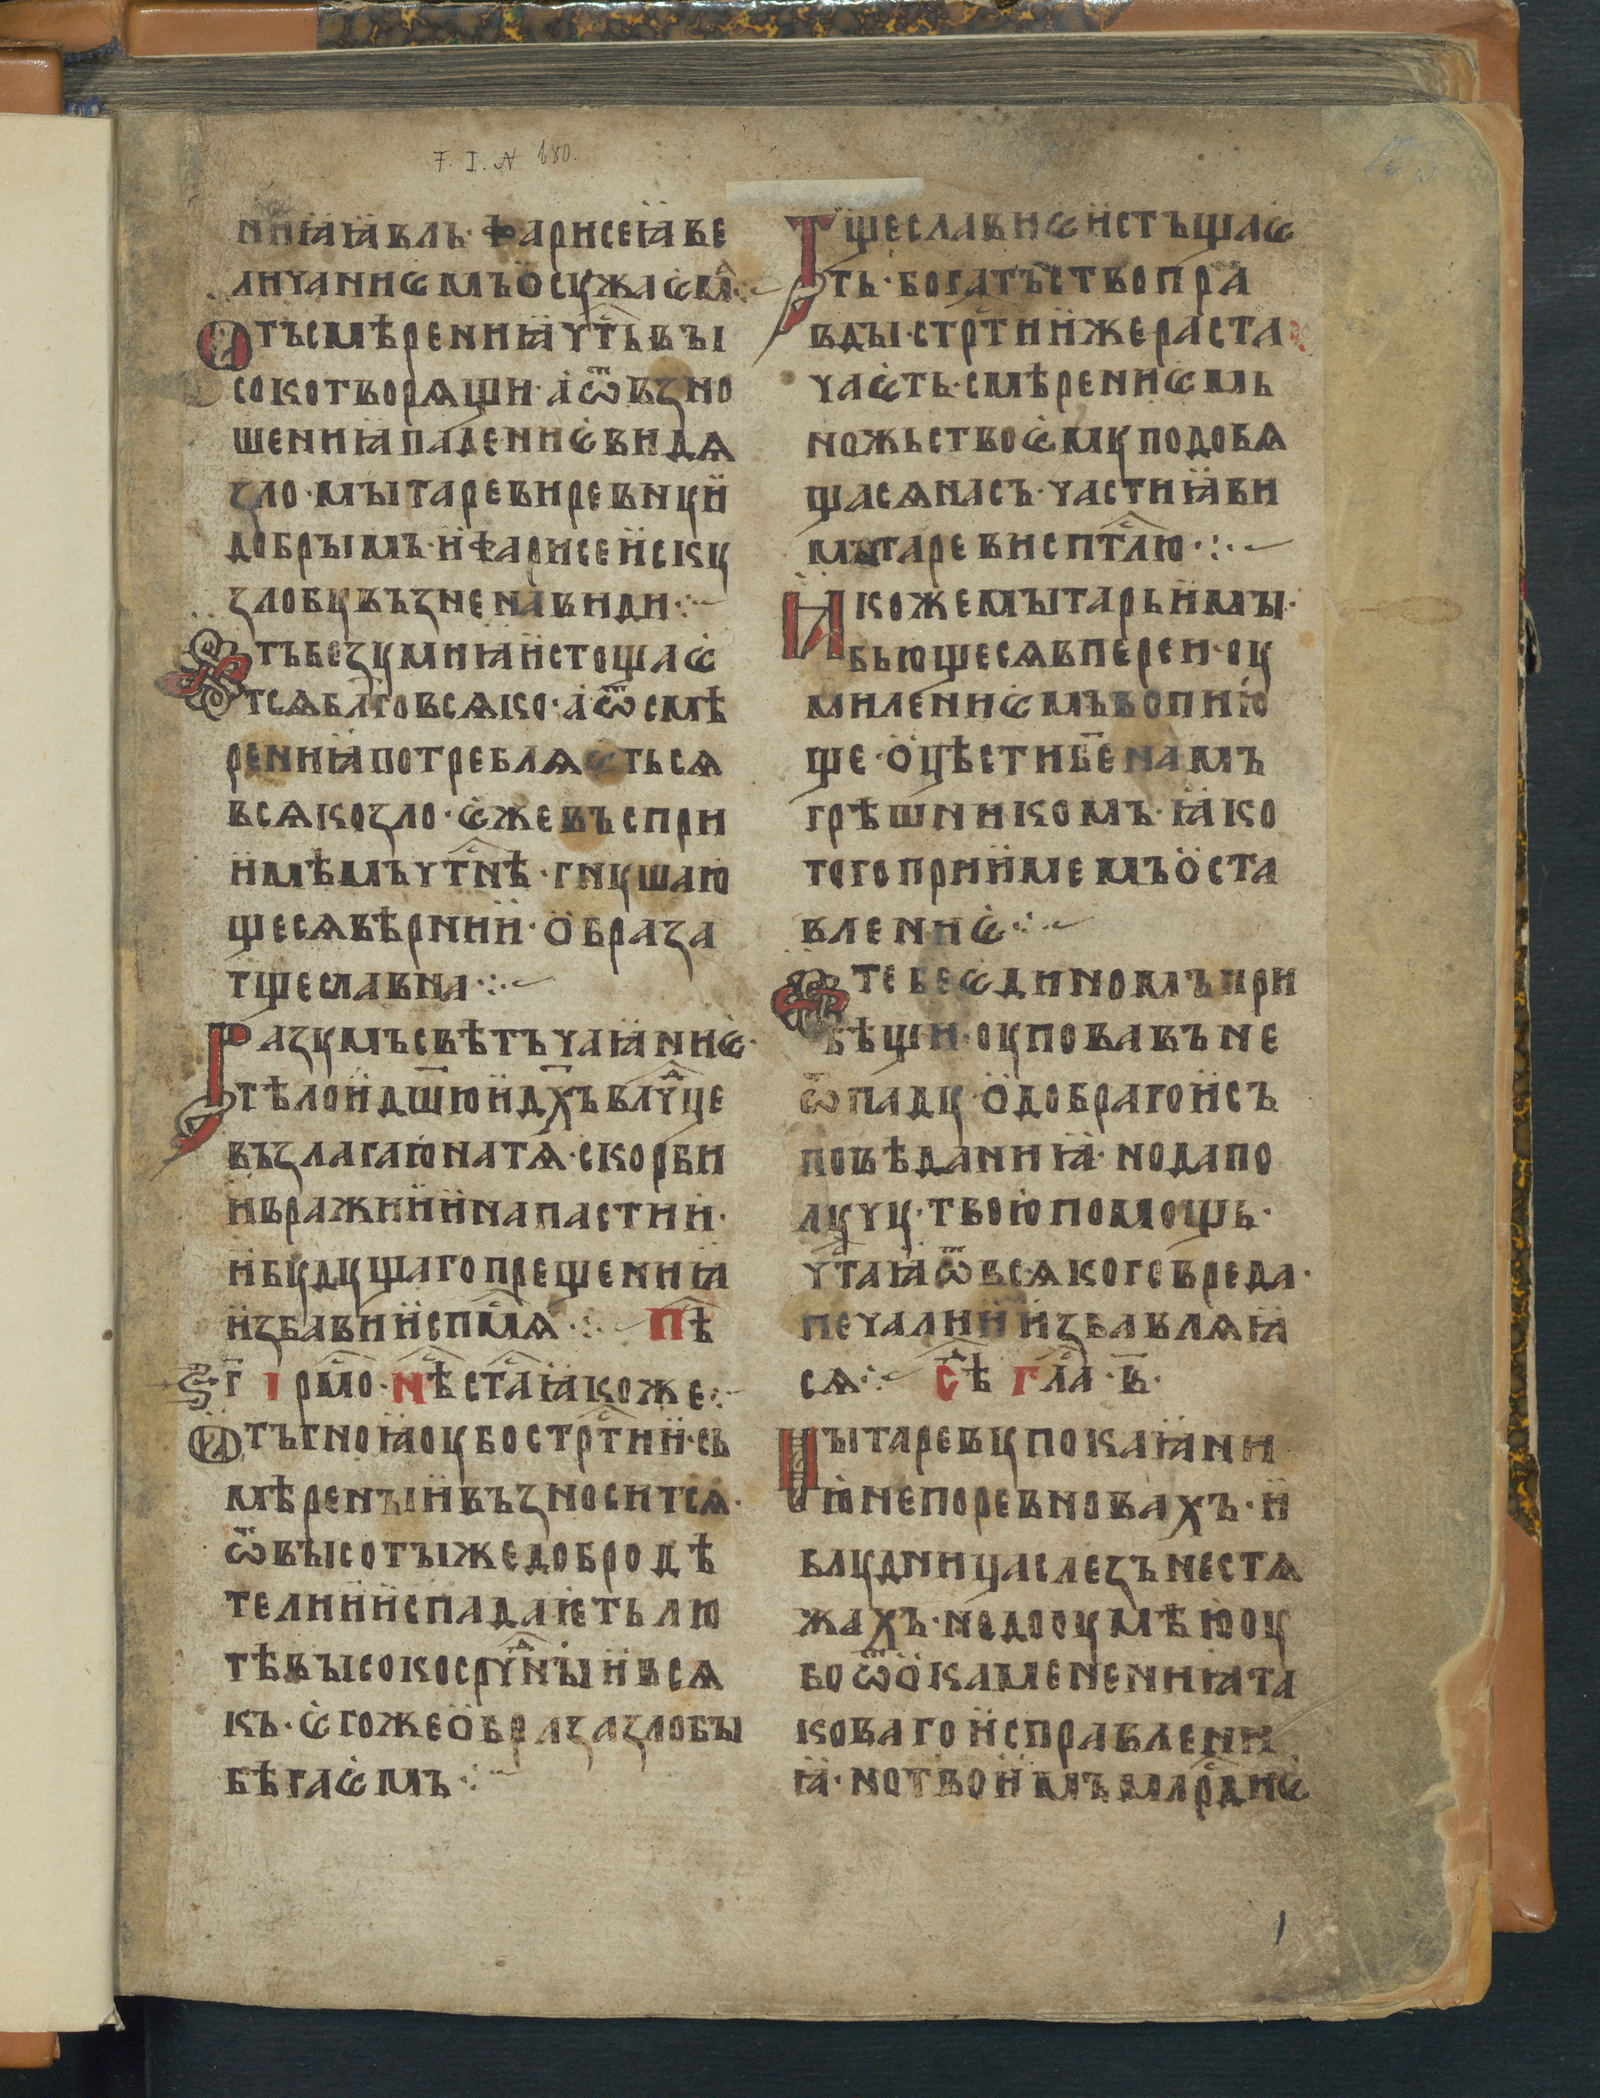 F. I. N 680.
ниꙗꙗвль · фарисеꙗ ве
личаниѥмъ осꙋжаѥм̑ ·:~
Отъ смѣрениꙗ чⷭ҇ть вы
сокотворѧщи · а ѿ възно
шениꙗ падениѥ видѧ
зло · мытареви ревнꙋи
добрымъ · и фарисеискꙋ
злобꙋ възненавиди ·:~
Отъ безꙋмниꙗ истощаѥ
тсѧ благо всѧко · а ѿ смѣ
рениꙗ потреблѧѥтьсѧ
всѧко зло · ѥже въспри
имѣмъ чⷭ҇тнѣ · гнꙋшаю
щесѧ вѣрнии · образа
тщеславна ·:~
Разꙋмъ свѣтъ чаꙗниѥ ·
тѣло и дш҃ю и дх҃ъ влⷣчце
възлагаю на тѧ · скорби
и вражии напастии ·
и бꙋдꙋщаго прещениꙗ
избави и сп҃мѧ ·:~ Пⷭ҇ѣ
ѕ҃ Ірмⷭ҇о · Нѣⷭ҇ ст҃а ꙗкоже ·:~
Отъ гноꙗ оубо стрⷭ҇тии · съ
мѣреныи възноситсѧ ·
ѿ высоты же добродѣ
телнии испадаѥть лю
тѣ высокосрⷣчныи всѧ
къ · ѥгоже образа злобы
бѣгаѥмъ ·:~
Тщеславиѥ истъщаѥ
ть · богатьство пра
вды · стрⷭ҇ти иже раста
чаѥть · смѣрениѥ мь
ножьство ѥмꙋ подобѧ
щасѧ насъ · части ꙗви
мытареви сп҃стлю ·:~
Ꙗкоже мытарь и мы ·
бьющесѧ в перси · оу
милениѥмъ вопию
ще · оцѣсти бж҃е намъ
грѣшникомъ · ꙗко
того приимемъ оста
влениѥ ·:~
Къ тебе ѥдиномъ при
бѣщи · оуповавъ не
ѿпадꙋ · о добраго исъ
повѣданиꙗ · но да по
лꙋчꙋ · твою помощь ·
чⷭ҇таꙗ ѿ всѧкого вреда ·
печалнии избавлѧꙗ
сѧ ·:~ Сѣⷣ Глⷭ҇а · в҃ ·
Мытаревꙋ покаꙗни
ю не поревновахъ · и
блꙋдница слезъ не стѧ
жахъ · недооумѣю оу
бо ѿ окаменениꙗ та
коваго исправлени
ꙗ · но твоимъ млрⷭ҇диѥ
1